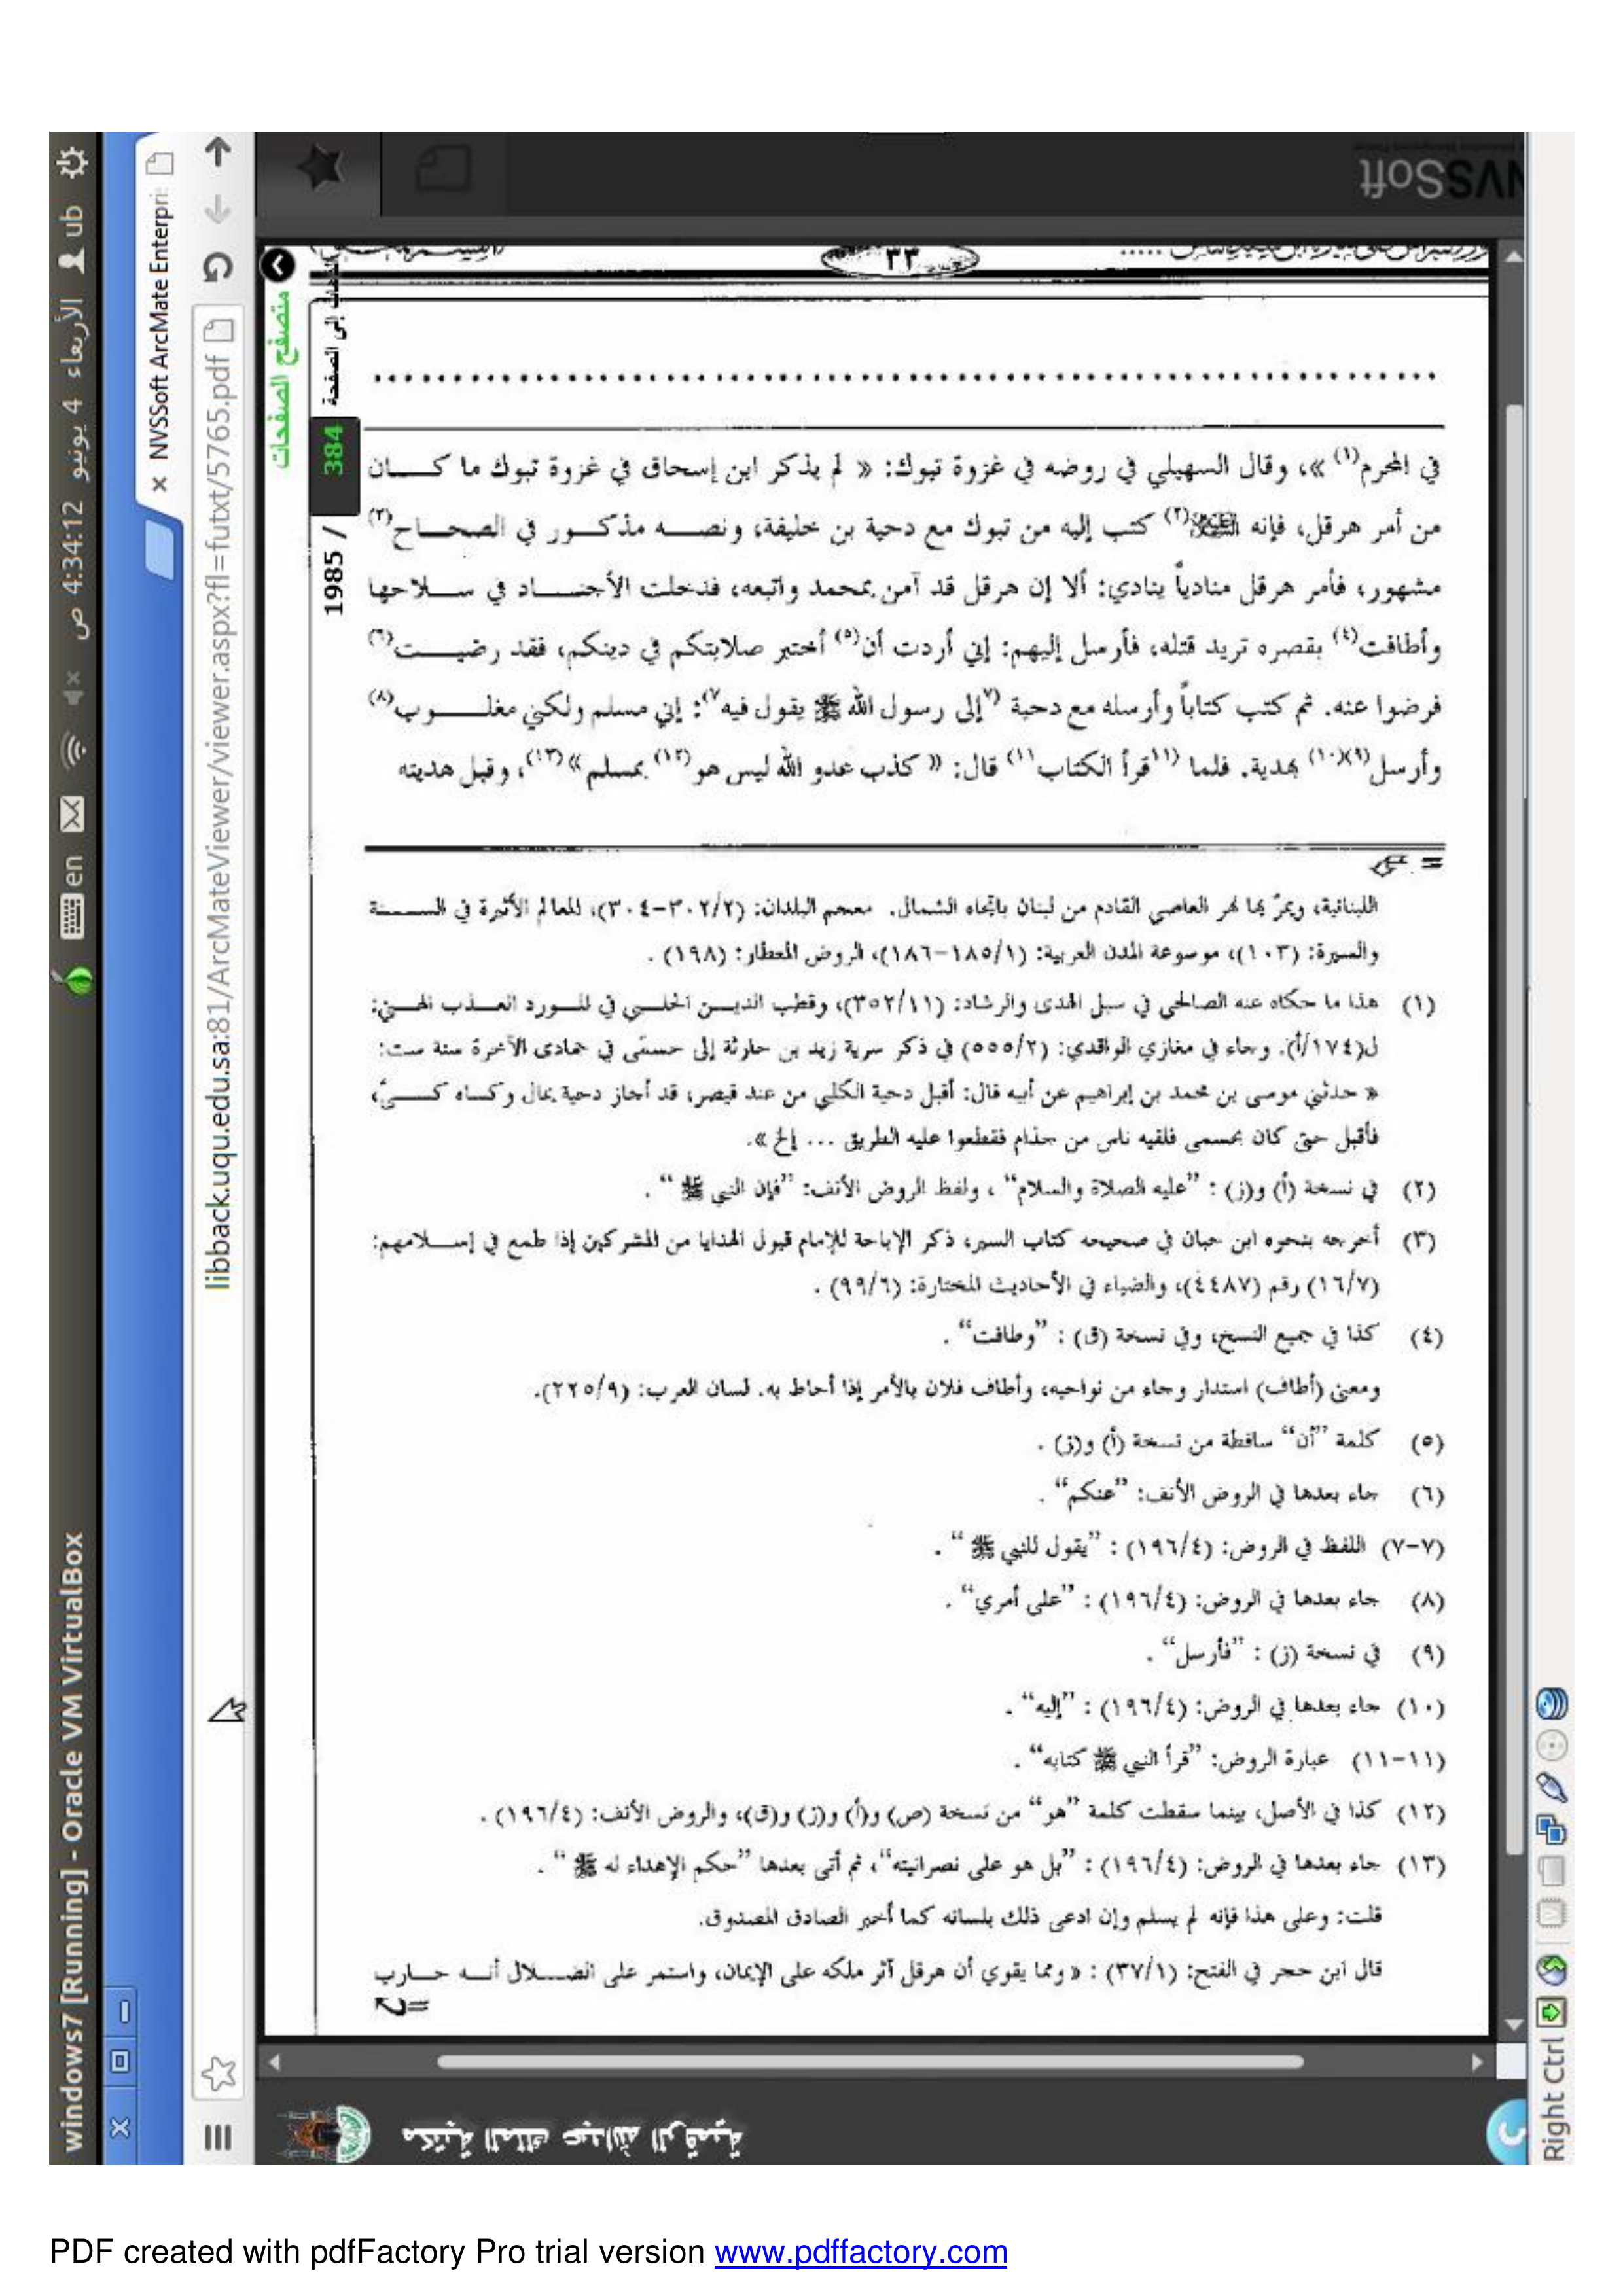 windows7 [Running] - Oracle VM VirtualBox
en
الأربعاء 4 يونيو 4:34:12 ص
ub
NVSSoft ArcMate Enterpri
libback.uqu.edu.sa:81/ArcMateViewer/viewer.aspx?fl=futxt/5765.pdf
NVSSoft
متصفح الصفحات
إلى الصفحة
384 / 1985
٣٣
في المحرم(١) »، وقال السهيلي في روضه في غزوة تبوك: « لم يذكر ابن إسحاق في غزوة تبوك ما كـــان
من أمر هرقل، فإنه ﷺ(٢) كتب إليه من تبوك مع دحية بن خليفة، ونصـــه مذكــور في الصحـــاح(٣)
مشهور، فأمر هرقل منادياً ينادي: ألا إن هرقل قد آمن بمحمد واتبعه، فدخلت الأجنـــاد في ســـلاحها
وأطافت(٤) بقصره تريد قتله، فأرسل إليهم: إني أردت أن(٥) أختبر صلابتكم في دينكم، فقد رضيـــت(٦)
فرضوا عنه. ثم كتب كتاباً وأرسله مع دحية (٧إلى رسول الله ﷺ يقول فيه٧): إني مسلم ولكني مغلـــوب(٨)
وأرسل(٩)(١٠) بهدية. فلما (١١قرأ الكتاب١١) قال: « كذب عدو الله ليس هو(١٢) بمسلم»(١٣)، وقبل هديته
=
اللبنانية، ويمرّ بها نهر العاصي القادم من لبنان باتجاه الشمال. معجم البلدان: (٣٠٢/٢-٣٠٤)، المعالم الأثيرة في الســـنة
والسيرة: (١٠٣)، موسوعة المدن العربية: (١٨٥/١-١٨٦)، الروض المعطار: (١٩٨) .
(١) هذا ما حكاه عنه الصالحي في سبل الهدى والرشاد: (٣٥٢/١١)، وقطب الديـــن الحلـــبي في المـــورد العـــذب الهـــني:
ل(١٧٤/أ). وجاء في مغازي الواقدي: (٥٥٥/٢) في ذكر سرية زيد بن حارثة إلى حسمَى في جمادى الآخرة سنة ست:
« حدثني موسى بن محمد بن إبراهيم عن أبيه قال: أقبل دحية الكلبي من عند قيصر، قد أجاز دحية بمال وكساه كســـىً،
فأقبل حتى كان بحسمى فلقيه ناس من جذام فقطعوا عليه الطريق ... إلخ ».
(٢) في نسخة (أ) و(ز) : ”عليه الصلاة والسلام“ ، ولفظ الروض الأنف: ”فإن النبي ﷺ“ .
(٣) أخرجه بنحوه ابن حبان في صحيحه كتاب السير، ذكر الإباحة للإمام قبول الهدايا من المشركين إذا طمع في إســـلامهم:
(١٦/٧) رقم (٤٤٨٧)، والضياء في الأحاديث المختارة: (٩٩/٦) .
(٤) كذا في جميع النسخ، وفي نسخة (ق) : ”وطافت“ .
ومعنى (أطاف) استدار وجاء من نواحيه، وأطاف فلان بالأمر إذا أحاط به. لسان العرب: (٢٢٥/٩).
(٥) كلمة ”أن“ ساقطة من نسخة (أ) و(ز) .
(٦) جاء بعدها في الروض الأنف: ”عنكم“ .
(٧-٧) اللفظ في الروض: (١٩٦/٤) : ”يقول للنبي ﷺ“ .
(٨) جاء بعدها في الروض: (١٩٦/٤) : ”على أمري“ .
(٩) في نسخة (ز) : ”فأرسل“ .
(١٠) جاء بعدها في الروض: (١٩٦/٤) : ”إليه“ .
(١١-١١) عبارة الروض: ”قرأ النبي ﷺ كتابه“ .
(١٢) كذا في الأصل، بينما سقطت كلمة ”هو“ من نسخة (ص) و(أ) و(ز) و(ق)، والروض الأنف: (١٩٦/٤) .
(١٣) جاء بعدها في الروض: (١٩٦/٤) : ”بل هو على نصرانيته“، ثم أتى بعدها ”حكم الإهداء له ﷺ“ .
قلت: وعلى هذا فإنه لم يسلم وإن ادعى ذلك بلسانه كما أخبر الصادق المصدوق.
قال ابن حجر في الفتح: (٣٧/١) : « ومما يقوي أن هرقل آثر ملكه على الإيمان، واستمر على الضـــلال أنـــه حـــارب
=
مكتبة الملك عبدالله الرقمية
Right Ctrl
PDF created with pdfFactory Pro trial version www.pdffactory.com